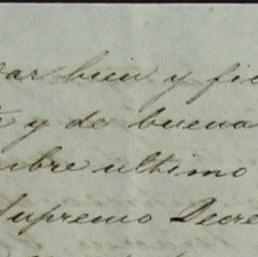 dar bien y fie
y de buena
mbre ultimo
Supremo Decre